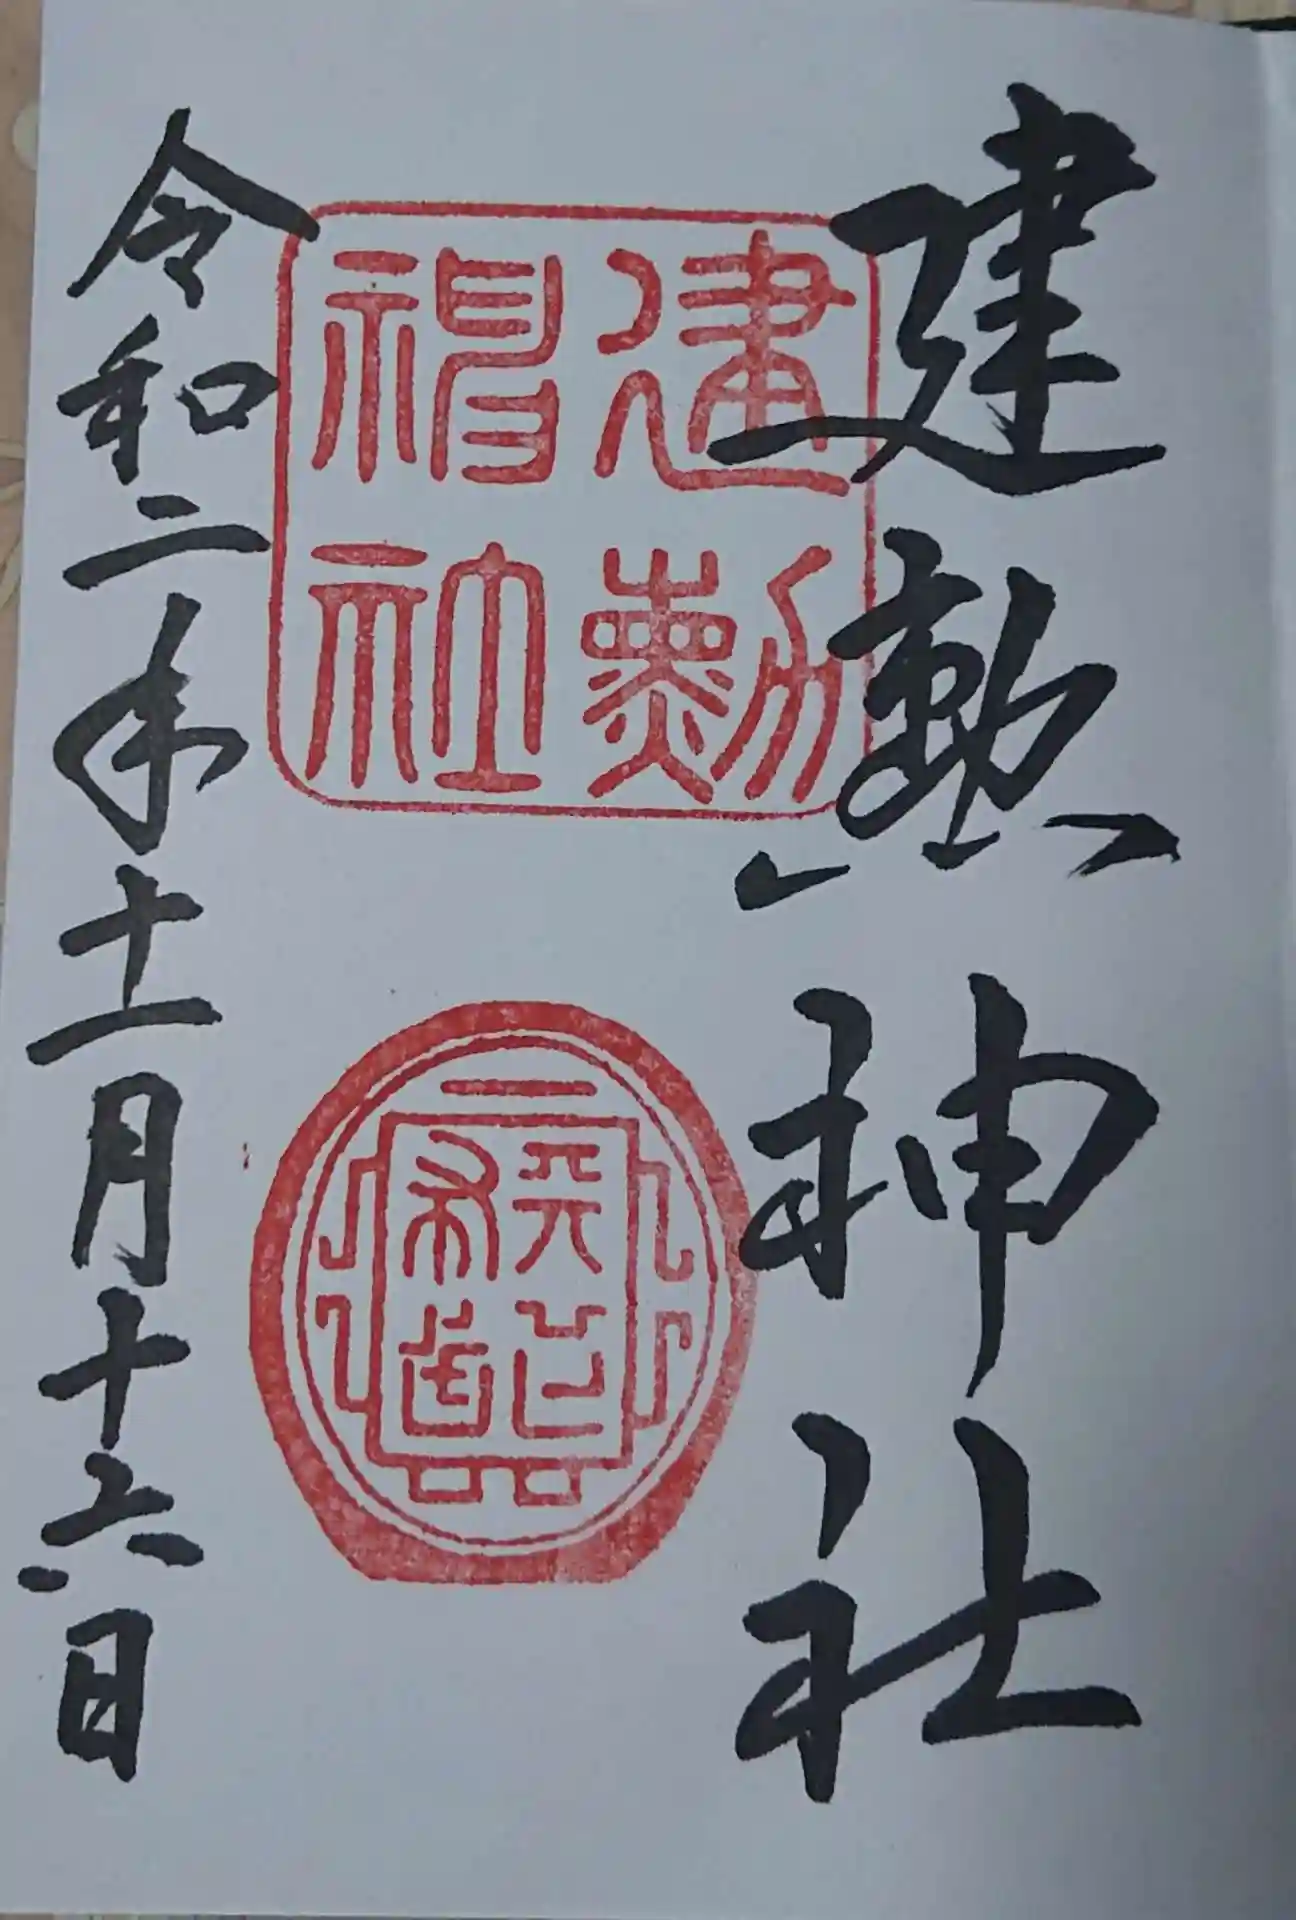 建勲神社
建勲
神社
天下布武
令和二年十一月十六日